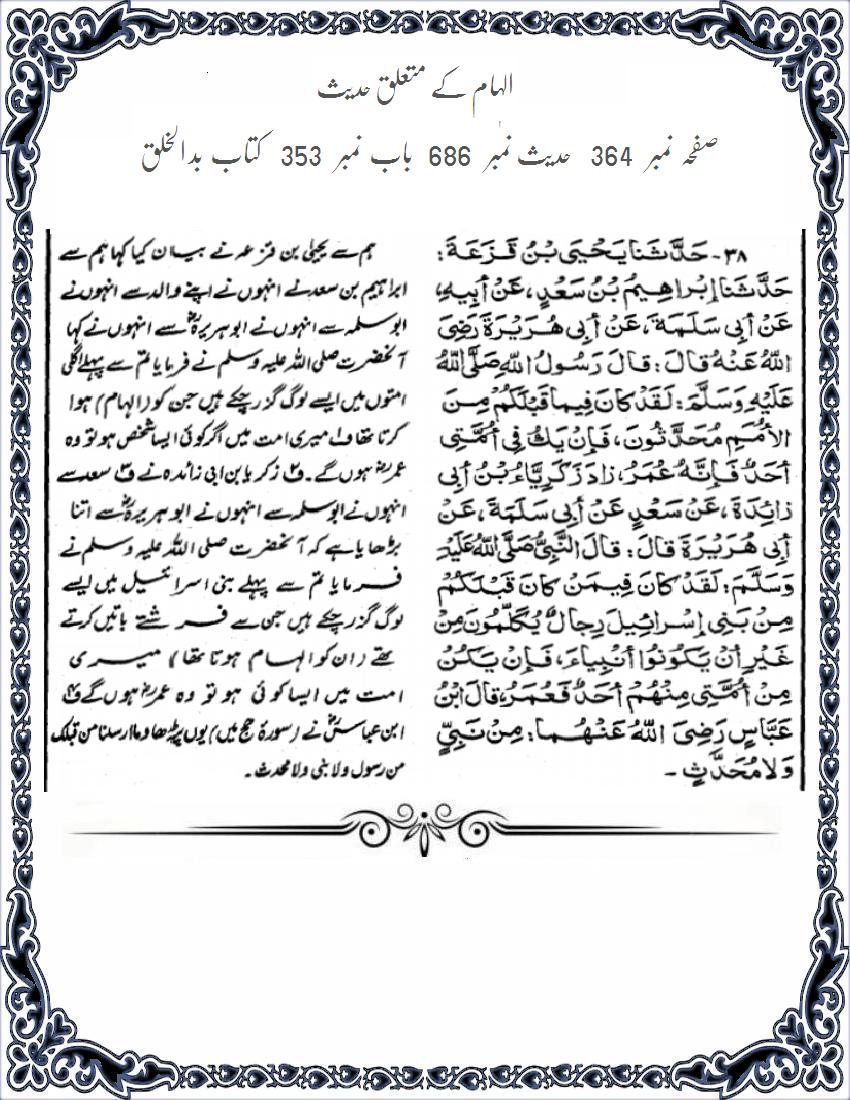 الہام کے متعلق حدیث
صفحہ نمبر 364 حدیث نمبر 686 باب نمبر 353 کتاب بدالخلق
۳۸- حَدَّثَنَا يَحْيَى بْنُ قَزَعَةَ:
حَدَّثَنَا إِبْرَاهِيمُ بْنُ سَعْدٍ، عَنْ أَبِيهِ،
عَنْ أَبِي سَلَمَةَ، عَنْ أَبِي هُرَيْرَةَ رَضِيَ
اللّٰهُ عَنْهُ قَالَ: قَالَ رَسُولُ اللّٰهِ صَلَّى اللّٰهُ
عَلَيْهِ وَسَلَّمَ: لَقَدْ كَانَ فِيمَا قَبْلَكُمْ مِنَ
الأُمَمِ مُحَدَّثُونَ، فَإِنْ يَكُ فِي أُمَّتِي
أَحَدٌ فَإِنَّهُ عُمَرُ، زَادَ زَكَرِيَّاءُ بْنُ أَبِي
زَائِدَةَ، عَنْ سَعْدٍ عَنْ أَبِي سَلَمَةَ، عَنْ
أَبِي هُرَيْرَةَ قَالَ: قَالَ النَّبِيُّ صَلَّى اللّٰهُ عَلَيْهِ
وَسَلَّمَ: لَقَدْ كَانَ فِيمَنْ كَانَ قَبْلَكُمْ
مِنْ بَنِي إِسْرَائِيلَ رِجَالٌ يُكَلَّمُونَ مِنْ
غَيْرِ أَنْ يَكُونُوا أَنْبِيَاءَ، فَإِنْ يَكُنْ
مِنْ أُمَّتِي مِنْهُمْ أَحَدٌ فَعُمَرُ، قَالَ ابْنُ
عَبَّاسٍ رَضِيَ اللّٰهُ عَنْهُمَا: مِنْ نَبِيٍّ
وَلَا مُحَدَّثٍ -
ہم سے یحییٰ بن قزعہ نے بیان کیا کہا ہم سے
ابراہیم بن سعد نے انہوں نے اپنے والد سے انہوں نے
ابوسلمہ سے انہوں نے ابوہریرہؓ سے انہوں نے کہا
آنحضرت صلی اللہ علیہ وسلم نے فرمایا تم سے پہلے اگلی
امتوں میں ایسے لوگ گزر چکے ہیں جن کو (الہام) ہوا
کرتا تھا ف میری امت میں اگر کوئی ایسا شخص ہو تو وہ
عمرؓ ہوں گے۔ ف زکریا بن ابی زائدہ نے ف سعد سے
انہوں نے ابوسلمہ سے انہوں نے ابوہریرہؓ سے اتنا
بڑھایا ہے کہ آنحضرت صلی اللہ علیہ وسلم نے
فرمایا تم سے پہلے بنی اسرائیل میں ایسے
لوگ گزر چکے ہیں جن سے فرشتے باتیں کرتے
تھے (ان کو الہام ہوتا تھا) میری
امت میں ایسا کوئی ہو تو وہ عمرؓ ہوں گے ف
ابن عباسؓ نے (سورۂ حج میں) یوں پڑھا وما ارسلنا من قبلک
من رسول ولا نبی ولا محدث۔